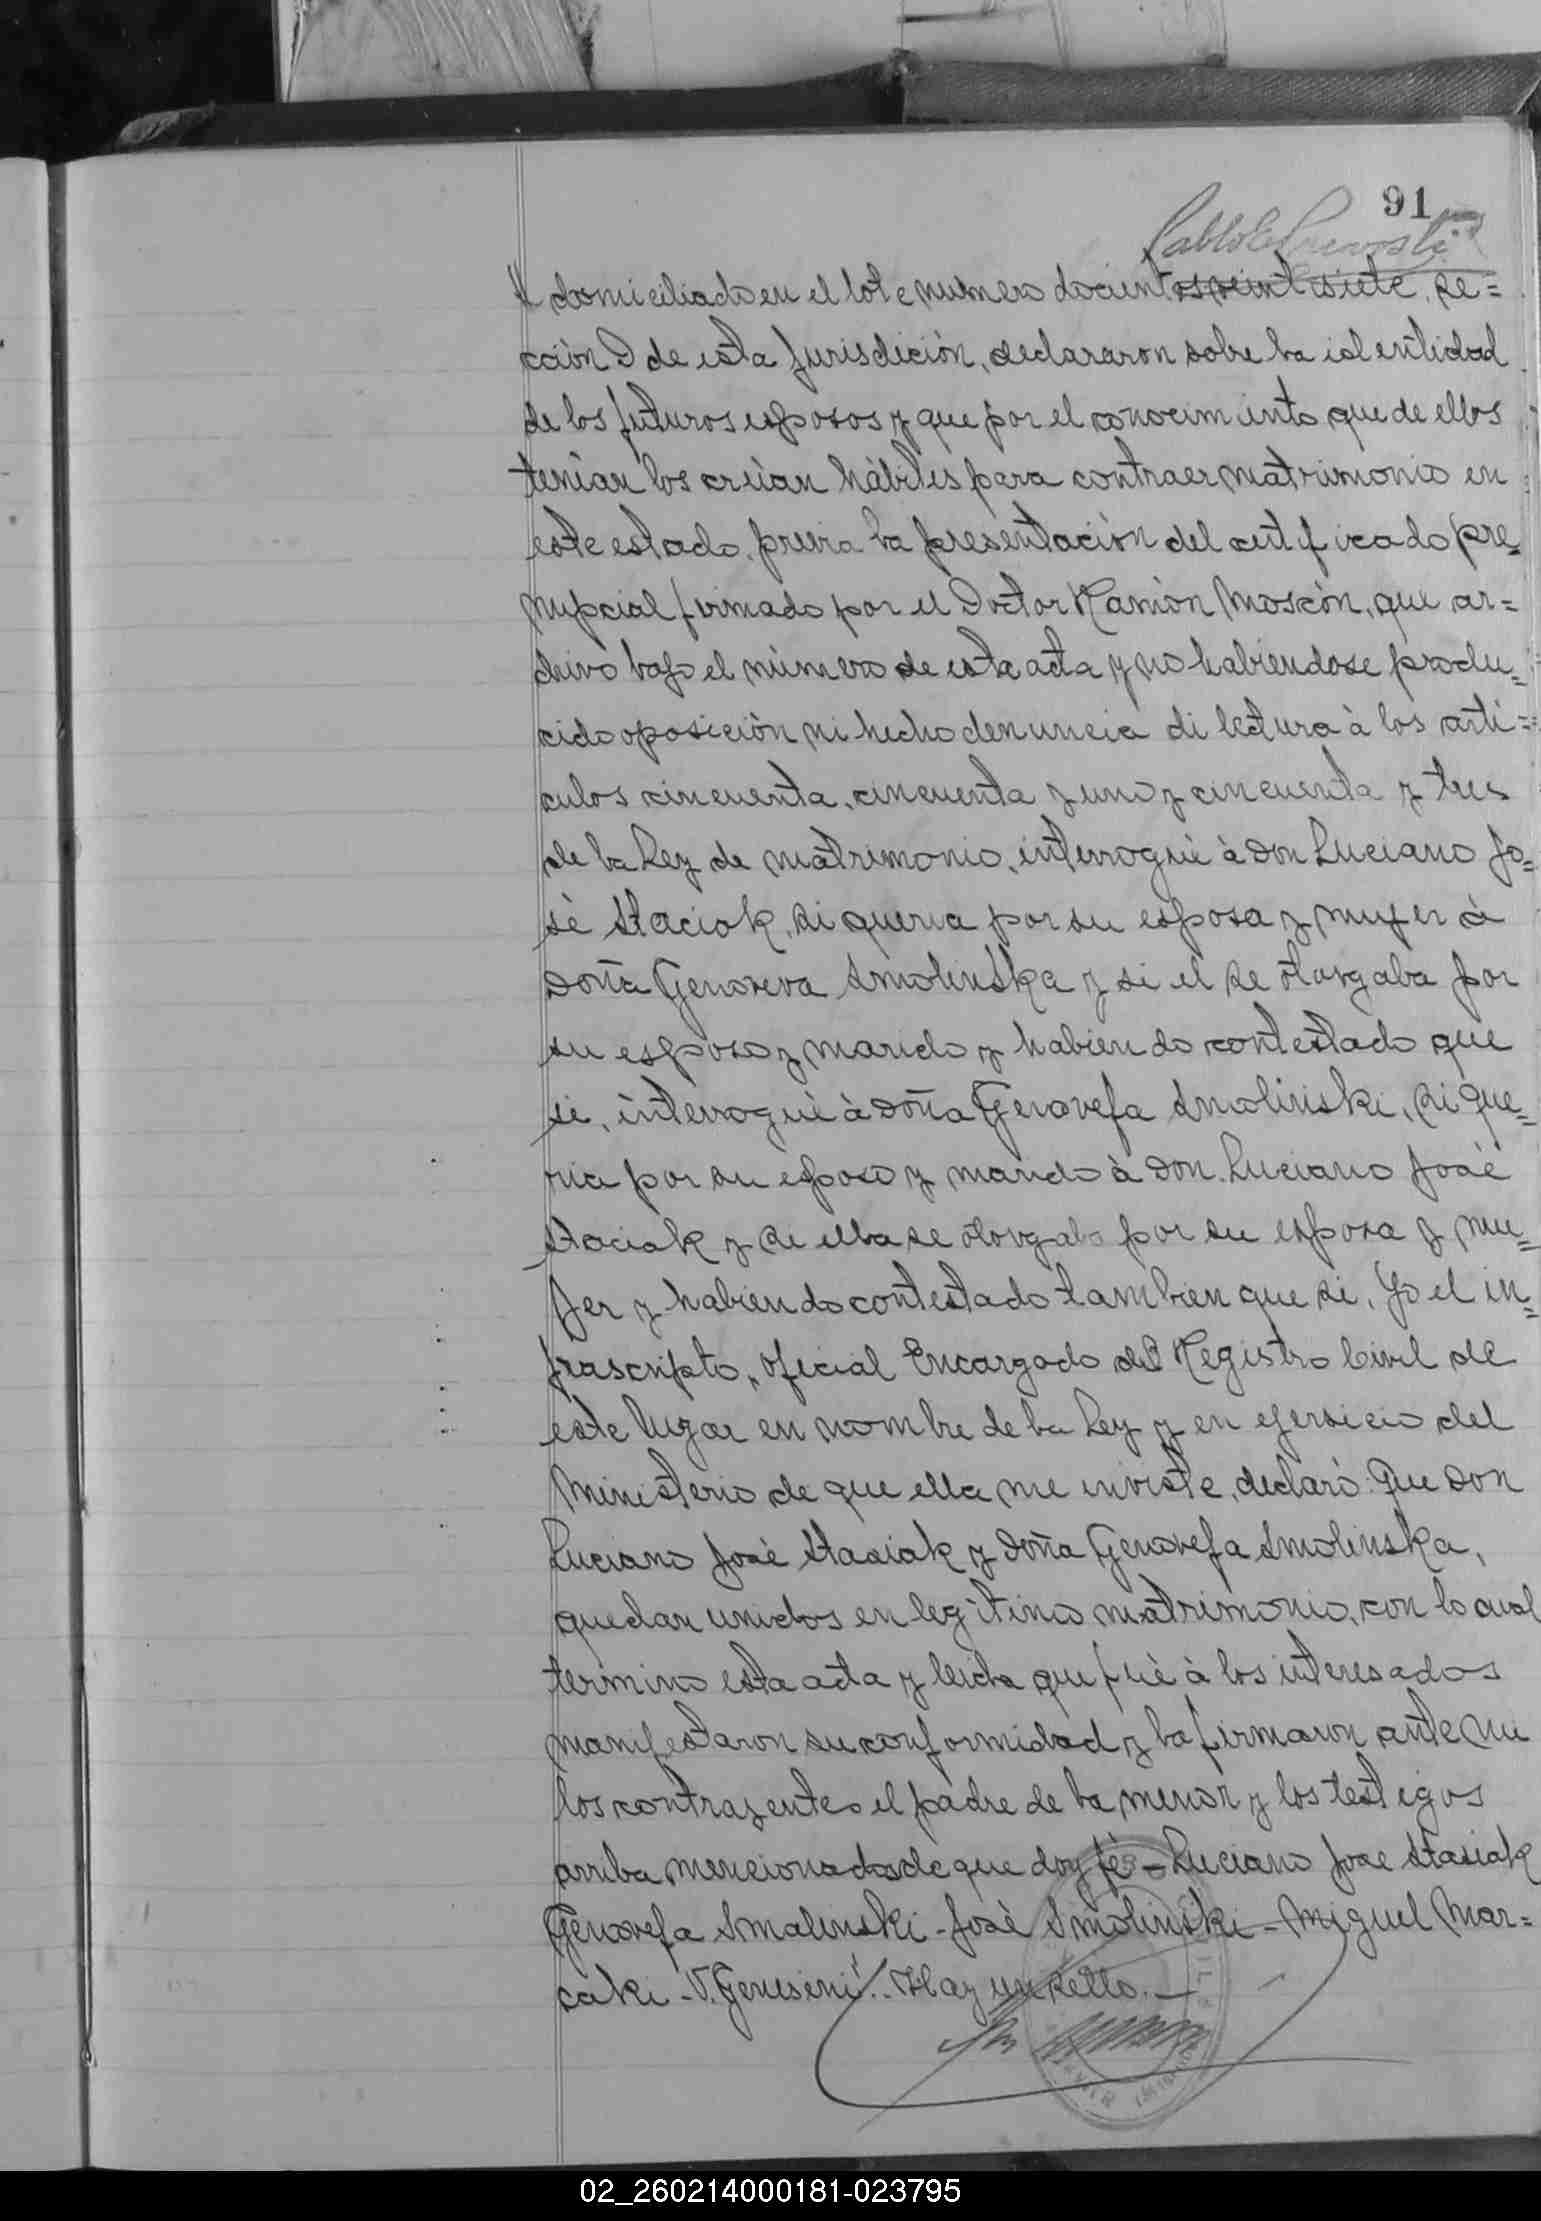 91
domiciliado en el lote numero docientos veintisiete, se=
cción D de esta jurisdición, declararon sobre la identidad
de los futuros esposos y que por el conocimiento que de ellos
tenían los creían hàbiles para contraer matrimonio en
este estado, previa la presentación del certificado pre=
nupcial firmado por el Doctor Ramòn Moscòn, que ar=
chivo bajo el nùmero de esta acta y no habiendose produ=
cido oposición ni hecho denuncia di lectura à los arti=
culos cincuenta, cincuenta y uno y cincuenta y tres
de la Ley de matrimonio, interroguè à don Luciano Jo=
sè Staciok, si queria por su esposa y mujer à
Doña Genoveva Smolinska y si el se otorgaba por
su esposo y marido y habiendo contestado que
si, interroguè à doña Genovefa Smolinski, si que=
ria por su esposo y marido à Don Luciano José
Staciak y si ella se otorgaba por su esposa y mu=
jer y habiendo contestado tambien que si, Yo el in=
frascripto, oficial Encargado del Registro Civil de
este lugar en nombre de la Ley y en ejersicio del
Ministerio de que ella me inviste, declaró: Que Don
Luciano Josè Stasiak y Doña Genovefa Smolinska,
quedan unidos en legitimo matrimonio, con lo cual
termino esta acta y leida que fuè à los interesados
manifestaron su conformidad y la firmaron ante mi
los contrayentes el padre de la menor y los testigos
arriba mencionados de que doy fè - Luciano Jose Stasiak
Genovefa Smalinski - Josè Smolinski - Miguel Mar=
caki - V. Genesini". Hay un sello. -
02_260214000181-023795